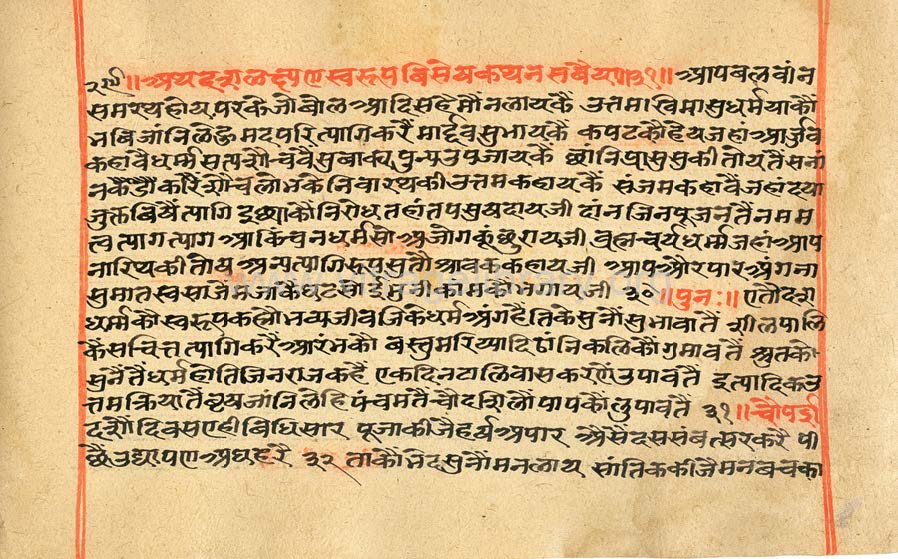 ॥अथ दशलक्षण स्वरूप विसेष कथन सवैया ३१॥ आप बलवांन
समरथ होय पर के जो बोल आदि सहै मौंन लाय कैं उत्तमा खिमा सुधर्म या कौं
जांनि परित्यागि करैं मार्द्दव सुभाय कैं कपट कौ हेय जहां आर्जव
कहावै धर्म्म सत्य सौच वैसु वाक्य पुन्य उपजाय कैं
लोभ के निवारय की उत्तम कहाय कैं संजम कहावै जहां दया
जुक्त विषैं त्यागि इछा कौ निरोध तहां तप सुषदाय जी दांन जिन पूजन तैं मम
त्व त्याग त्याग आकिंचन धर्म सो जोग कूं छुराय जी ब्रह्मचर्य धर्म्म जहां आप
नारिय की तोय अन्य त्यागि रूप सुतौ श्रावक कहाय जी आप और पार अंगना
सुमात स्वसा जैम जाकै घट सोई मुनी काम कौ भगाय जी ३० ॥पुनः॥ एतौ दश
धर्म्म कौ स्वरूप कह्यो भव्य जीव जिके धर्म अंग है तिके सुनौ सुभावा तैं शील पालि
कैं सचित्त त्यागि करैं आरंभ कौ वस्तु मरिय्यादि ठांनि कलि कौं गमाव तैं श्रुत को
सुनै तैं धर्म होति जिनराज कहैं एक दिन टालि वास करणैं उपाव तैं इत्यादिक उ
त्तम क्रिया तैं जांनि लेहि पंचम तैं चौदशि लौं पाप कौं लुपाव तैं ३१ ॥चौपई॥
दशौं दिवस एही विधि सार पूजा कीजै हर्ष अपार अैसें दस संवत्सर करै पा
छैं उद्यापण अघ हरै ३२ ताकौ भेद सुनौं मन लाय सांतिक कीजै मन वच का